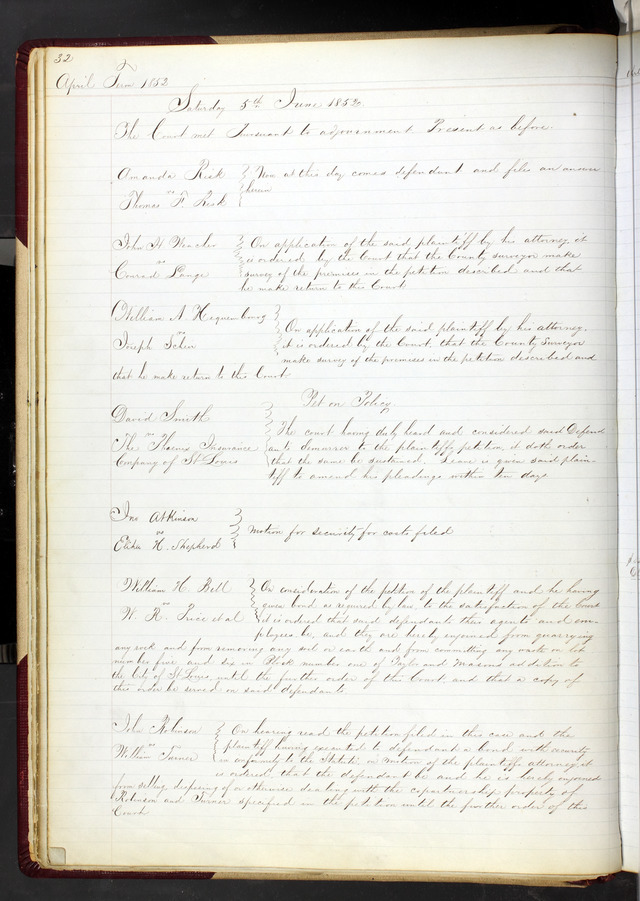 32
April Term 1852
Saturday 5th June 1852
The Court met Pursuant to adjournment. Present as before.
Amanda Risk
vs
Thomas F. Risk
Now at this day comes defendant and files an answer
herein
John H Waacher
vs
Conrad Lange
On application of the said plaintiff by his attorney it
is ordered by the Court that the County surveyor make
survey of the premises in the petition described and that
he make return to this Court
William A Hequembourg
vs
Joseph
On application of the said plaintiff by his attorney,
it is ordered by the Court, that the County Surveyor
make survey of the premises in the petition described and
that he make return to this Court
David Smith
vs
The Phoenix Insurance
Company of St Louis
Pet on Policy
The court having duly heard and considered said Defend-
ants demurrer to the plaintiffs petition, it doth order
that the same be sustained. Leave is given said plain-
tiff to amend his pleadings within ten days
Jno Atkinson
vs
Elihu H. Shepherd
Motion for security for costs filed
William H. Bell
vs
W. R. Price et al
On consideration of the petition of the plaintiff and he having
given bond as required by law, to the satisfaction of the Court
it is ordered that said defendants their agents and em-
ployees be, and they are hereby enjoined from quarrying
any rock and from removing any soil or earth and from committing any waste on lots
number five and six in Block number one of Taylor and Masons addition to
the City of St Louis, until the further order of this Court, and that a copy of
this order be served on said defendants
John Robinson
vs
William Turner
On hearing read the petition filed in this case and the
plaintiff having executed to defendant a bond with security
in conformity to the Statute, on motion of the plaintiffs attorney, it
is ordered that the defendant be and he is hereby enjoined
from selling disposing of or otherwise dealing with the copartnership property of
Robinson and Turner specified in the petition until the further order of this
Court